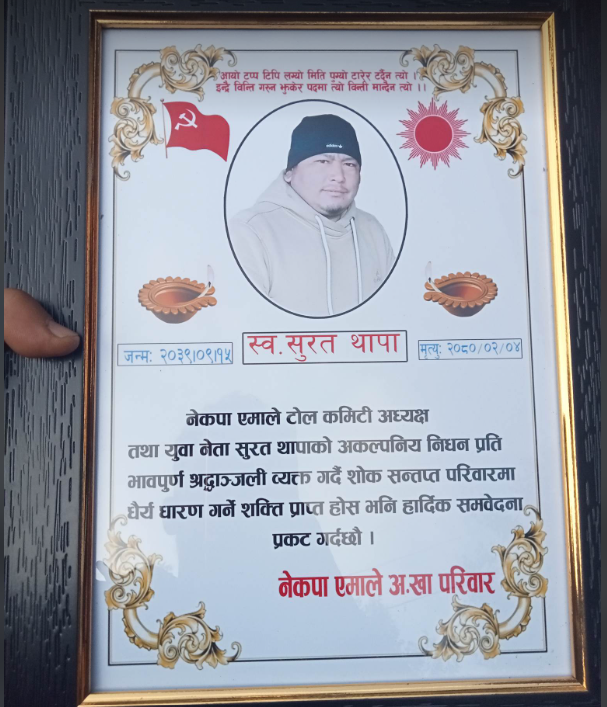 आयो टप्प टिपि लग्यो मिति पुग्यो टारेर टर्दैन त्यो ।
इन्द्रै विन्ति गरुन झुकेर पदमा त्यो विन्ती मान्दैन त्यो ।।
जन्म: २०३९।०९।१५
स्व. सुरत थापा
मृत्यु: २०८०/०२/०४
नेकपा एमाले टोल कमिटी अध्यक्ष
तथा युवा नेता सुरत थापाको अकल्पनिय निधन प्रति
भावपुर्ण श्रद्धाञ्जली व्यक्त गर्दै शोक सन्तप्त परिवारमा
धैर्य धारण गर्ने शक्ति प्राप्त होस भनि हार्दिक समवेदना
प्रकट गर्दछौ ।
नेकपा एमाले अ.खा परिवार